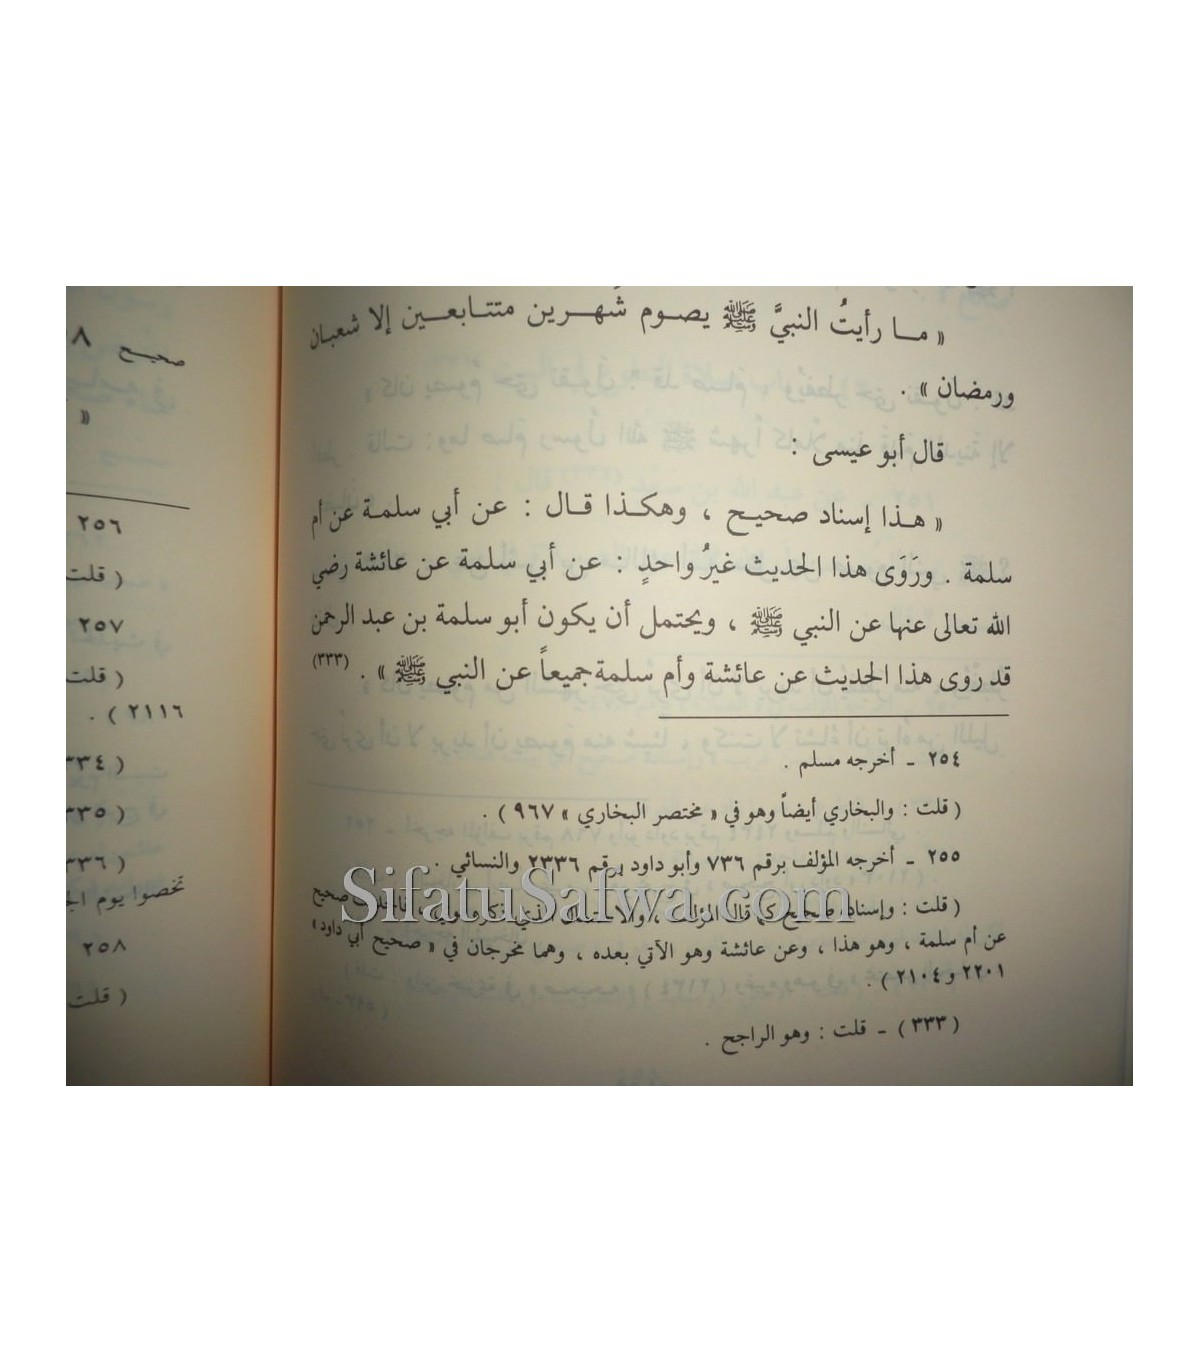 « مـا رأيتُ النبيَّ ﷺ يصـوم شهـرين متتـابعـين إلا شعبان
ورمضان » .
قال أبو عيسى :
« هـذا إسناد صحيـح ، وهكـذا قـال : عـن أبي سلمـة عن أم
سلمة . ورَوَى هذا الحديث غيرُ واحدٍ : عن أبي سلمة عن عائشة رضي
الله تعالى عنها عن النبي ﷺ ، ويحتمل أن يكون أبو سلمة بن عبد الرحمن
قد روى هذا الحديث عن عائشة وأم سلمة جميعاً عن النبي ﷺ » . (٣٣٣)
٢٥٤ - أخرجه مسلم .
( قلت : والبخاري أيضاً وهو في « مختصر البخاري » ٩٦٧ ) .
٢٥٥ - أخرجه المؤلف برقم ٧٣٦ وأبو داود برقم ٢٣٣٦ والنسائي .
( قلت : وإسناده صحيح كما قال المؤلف ، والاحتمال الذي ذكره صحيح
عن أم سلمة ، وهو هذا ، وعن عائشة وهو الآتي بعده ، وهما مخرجان في « صحيح أبي داود »
٢٢٠١ و ٢١٠٤ ) .
( ٣٣٣ ) - قلت : وهو الراجح .
صحيـح
«
٢٥٦
( قلت
٢٥٧
( قلت
٢١١٦ ) .
( ٣٣٤
( ٣٣٥
( ٣٣٦
تخصوا يوم
٢٥٨
( قلت
SifatuSafwa.com